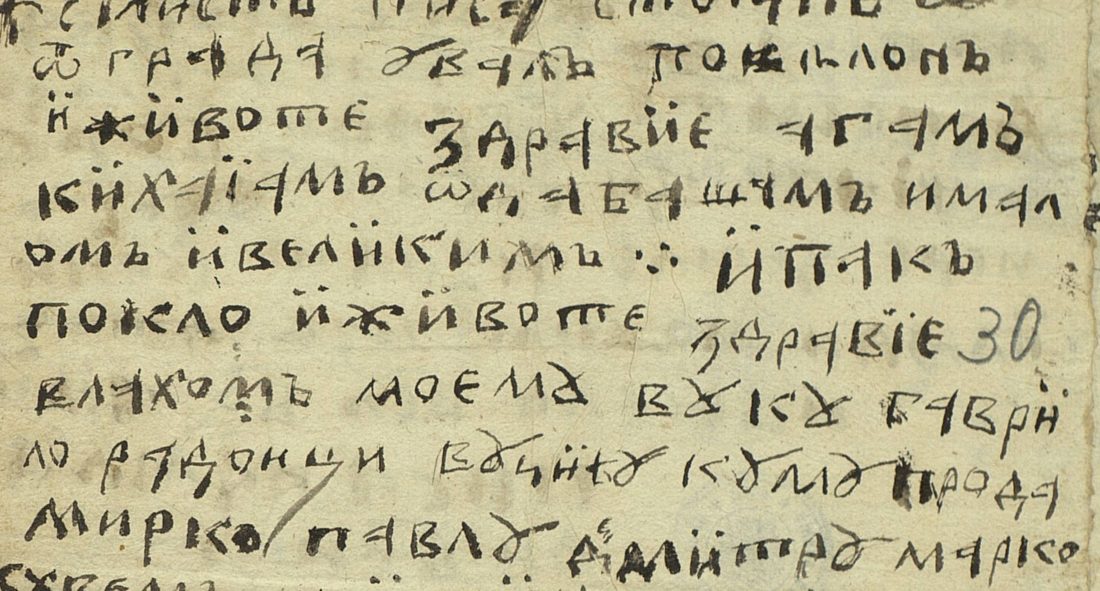 ѿ града ꙋвалъ поклонъ
ӥ жӥвоте здравӥе агамъ
кӥхаїамъ ѿдабашамъ имал
омъ ӥвелӥкимъ ჻ ӥпакъ
покло ӥжӥвоте здравїе 30
влахомъ моемꙋ вꙋкꙋ гаврӥ
ло радонци кꙋмꙋ прода
мирко павлꙋ дмӥтрꙋ марко